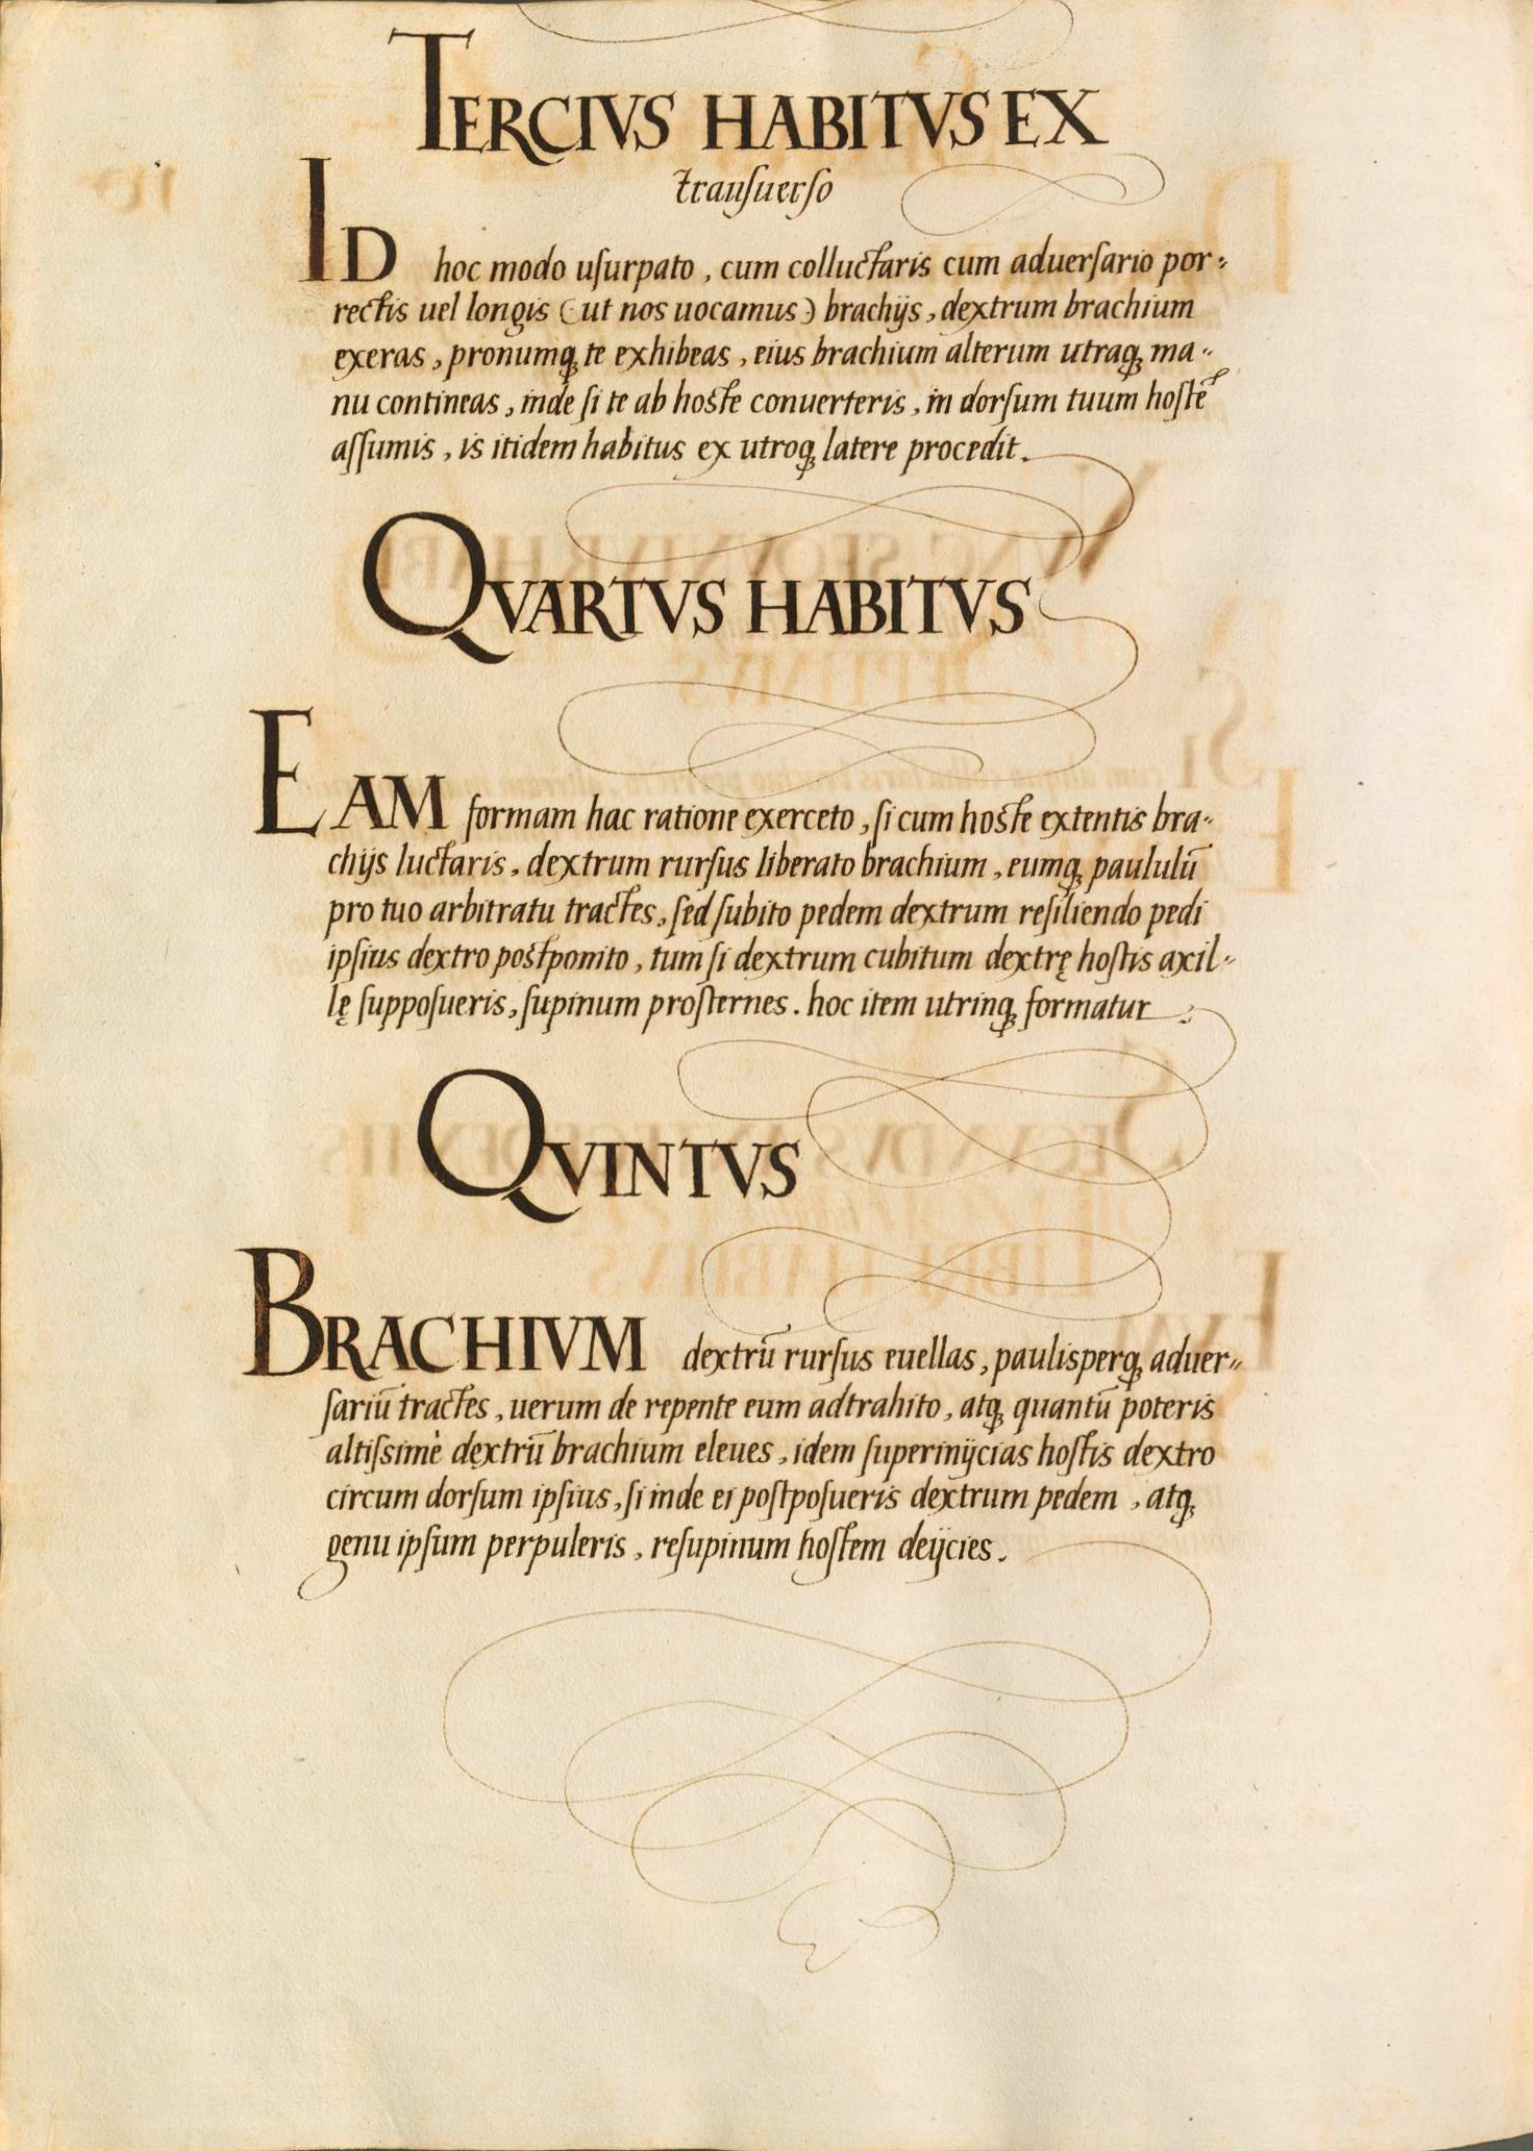 TERCIVS HABITVS EX
tranſuerſo
ID hoc modo uſurpato, cum colluctaris cum aduerſario por-
rectis uel longis (ut nos uocamus) brachijs, dextrum brachium
exeras, pronumq; te exhibeas, eius brachium alterum utraq; ma-
nu contineas, inde ſi te ab hoste conuerteris, in dorſum tuum hoſtē
aſſumis, is itidem habitus ex utroq; latere procedit.
QVARTVS HABITVS
EAM formam hac ratione exerceto, ſi cum hoste extentis bra-
chijs luctaris, dextrum rurſus liberato brachium, eumq; paululū
pro tuo arbitratu tractes, ſed ſubito pedem dextrum reſiliendo pedi
ipſius dextro postponito, tum ſi dextrum cubitum dextrę hoſtis axil-
lę ſuppoſueris, ſupinum proſternes. hoc item utrinq; formatur.
QVINTVS
BRACHIVM dextrū rurſus euellas, paulisperq; aduer-
ſariū tractes, uerum de repente eum adtrahito, atq; quantū poteris
altiſsimè dextrū brachium eleues, idem ſuperinijcias hoſtis dextro
circum dorſum ipſius, ſi inde ei poſtpoſueris dextrum pedem, atq;
genu ipſum perpuleris, reſupinum hoſtem deijcies.